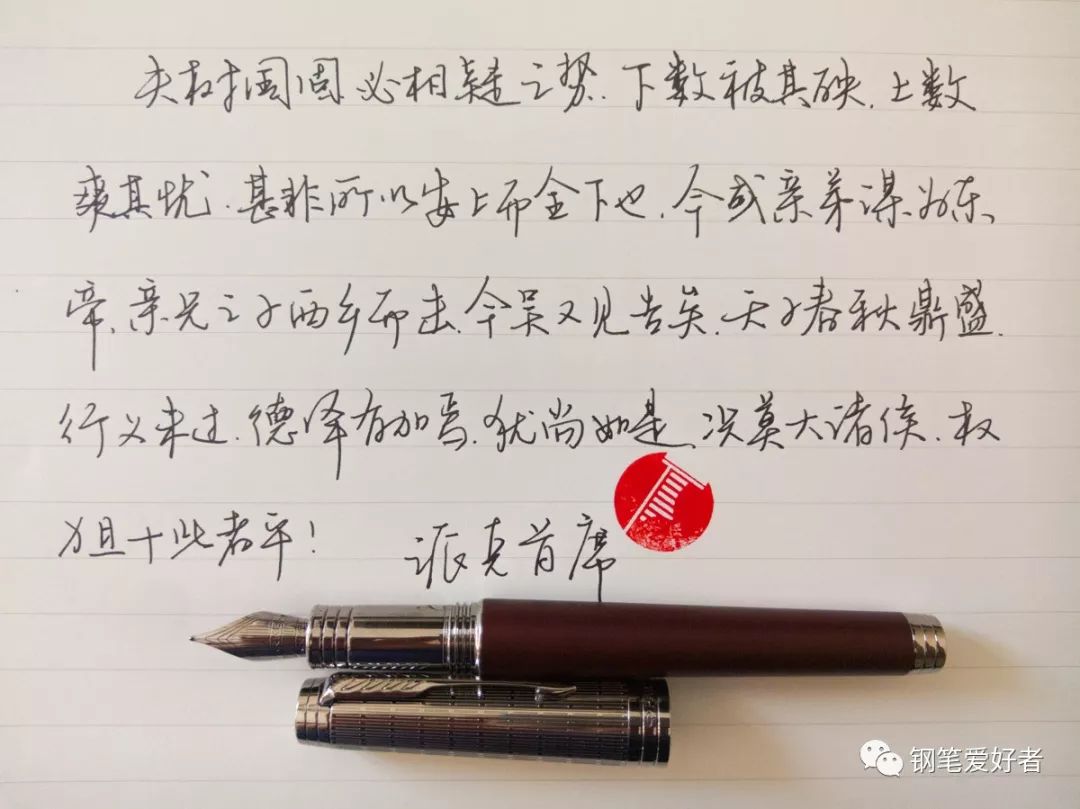 夫树国固必相疑之势,下数被其殃,上数
爽其忧,甚非所以安上而全下也,今或亲弟谋为东
帝,亲兄之子西乡而击,今吴又见告矣,天子春秋鼎盛,
行义未过,德泽有加焉,犹尚如是,况莫大诸侯,权
力且十此者乎!
派克首席
钢笔爱好者